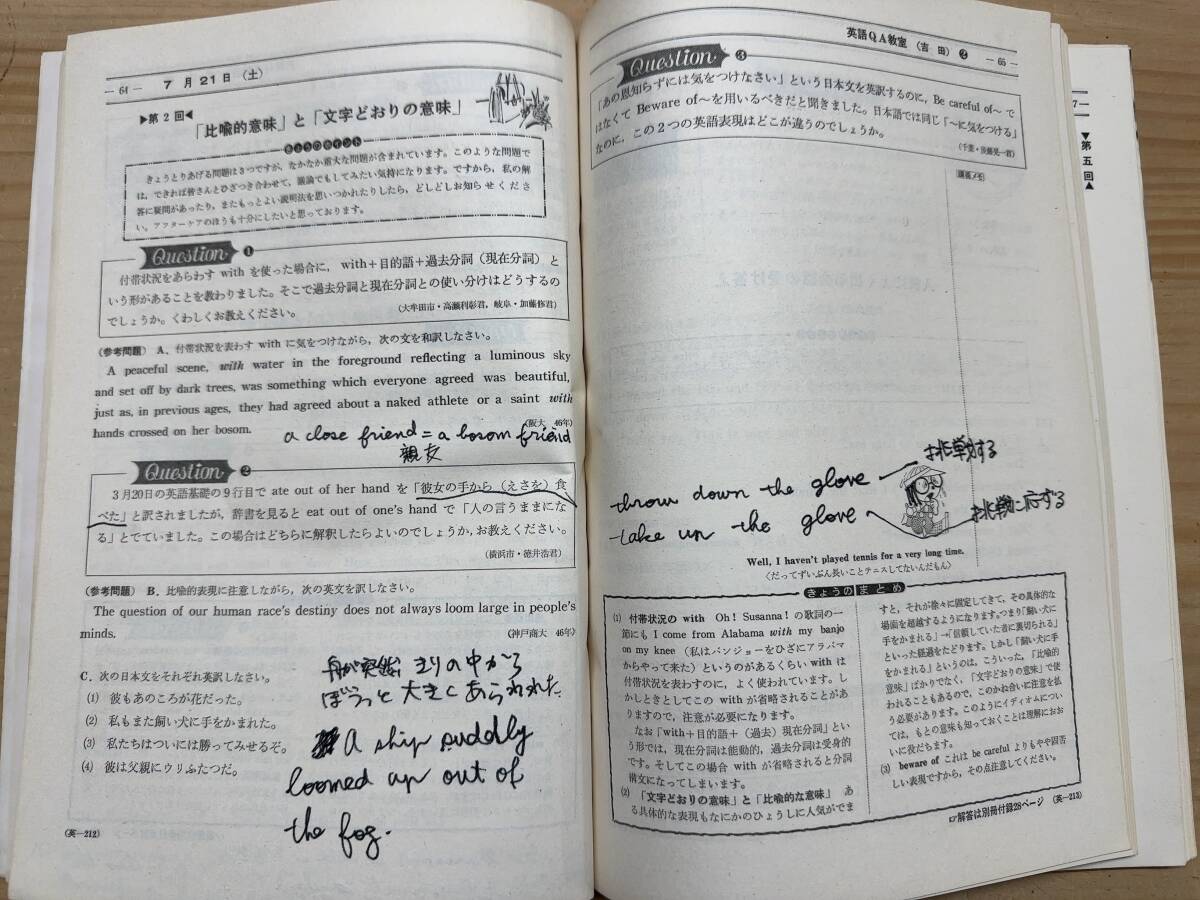 — 64 —
7月21日（土）
▶第2回◀
「比喩的意味」と「文字どおりの意味」
きょうのポイント
きょうとりあげる問題は3つですが，なかなか重大な問題が含まれています。このような問題で
は，できれば皆さんとひざつき合わせて，議論でもしてみたい気持になります。ですから，私の解
答に疑問があったり，またもっとよい説明法を思いつかれたりしたら，どしどしお知らせくださ
い。アフターケアのほうも十分にしたいと思っております。
Question ❶
付帯状況をあらわす with を使った場合に，with＋目的語＋過去分詞（現在分詞）と
いう形があることを教わりました。そこで過去分詞と現在分詞との使い分けはどうするの
でしょうか。くわしくお教えください。
（大牟田市・高瀬利彰君，岐阜・加藤修君）
（参考問題） A．付帯状況を表わす with に気をつけながら，次の文を和訳しなさい。
A peaceful scene, with water in the foreground reflecting a luminous sky
and set off by dark trees, was something which everyone agreed was beautiful,
just as, in previous ages, they had agreed about a naked athlete or a saint with
hands crossed on her bosom.
（阪大 46年）
a close friend = a bosom friend
親友
Question ❷
3月20日の英語基礎の9行目で ate out of her hand を「彼女の手から（えさを）食
べた」と訳されましたが，辞書を見ると eat out of one's hand で「人の言うままにな
る」とでていました。この場合はどちらに解釈したらよいのでしょうか，お教えください。
（横浜市・徳井浩君）
（参考問題） B．比喩的表現に注意しながら，次の英文を訳しなさい。
The question of our human race's destiny does not always loom large in people's
minds.
（神戸商大 46年）
C．次の日本文をそれぞれ英訳しなさい。
(1) 彼もあのころが花だった。
(2) 私もまた飼い犬に手をかまれた。
(3) 私たちはついには勝ってみせるぞ。
(4) 彼は父親にウリふたつだ。
舟が突然 きりの中から
ぼうっと 大きくあらわれた
A ship suddly
loomed up out of
the fog.
（英—212）
英語QA教室（吉田）❷
— 65 —
Question ❸
「あの恩知らずには気をつけなさい」という日本文を英訳するのに，Be careful of〜で
はなくて Beware of〜を用いるべきだと聞きました。日本語では同じ「〜に気をつける」
なのに，この2つの英語表現はどこが違うのでしょうか。
（千葉・後藤晃一君）
講義メモ
throw down the glove 挑戦する
take up the glove 挑戦に応ずる
Well, I haven't played tennis for a very long time.
〈だってずいぶん長いことテニスしてないんだもん〉
きょうのまとめ
(1) 付帯状況の with Oh! Susanna! の歌詞の一
節にも I come from Alabama with my banjo
on my knee（私はバンジョーをひざにアラバマ
からやって来た）というのがあるくらい with は
付帯状況を表わすのに，よく使われています。し
かしときとしてこの with が省略されることがあ
りますので，注意が必要になります。
なお「with＋目的語＋（過去）現在分詞」とい
う形では，現在分詞は能動的，過去分詞は受身的
です。そしてこの場合 with が省略されると分詞
構文になってしまいます。
(2) 「文字どおりの意味」と「比喩的な意味」 あ
る具体的な表現もなにかのひょうしに人気がでま
すと，それが徐々に固定してきて，その具体的な
場面を超越するようになります。つまり「飼い犬に
手をかまれる」→「信頼していた者に裏切られる」
といった経過をたどります。しかし「飼い犬に手
をかまれる」というのは，こういった，「比喩的
意味」ばかりでなく，「文字どおりの意味」で使
われることもあるので，このかね合いに注意を払
う必要があります。このようにイディオムについ
ては，もとの意味も知っておくことは理解におお
いに役だちます。
(3) beware of これは be careful よりもやや固苦
しい表現ですから，その点注意してください。
☞解答は別冊付録28ページ （英—213）
7—
▼第五回▲